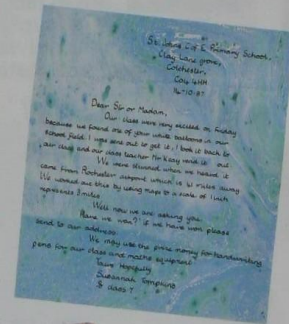 St. Johns C of E Primary School,
Clay Lane Grove,
Colchester,
CO4 4HH
14-10-97
Dear Sir or Madam,
Our class were very excited on Friday
because we found one of your white balloons in our
school field. I was sent out to get it, I took it back to
our class and our class teacher Mr Kay read it out
We were stunned when we heard it
came from Rochester airport which is 41 miles away
We worked out this by using maps to a scale of 1 inch
represents 8 miles.
Well now we are asking you
Have we won? if we have won please
send to our address.
We may use the prize money for handwriting
pens for our class and maths equipment
Yours Hopefully
Susannah Tompkins
& class 7